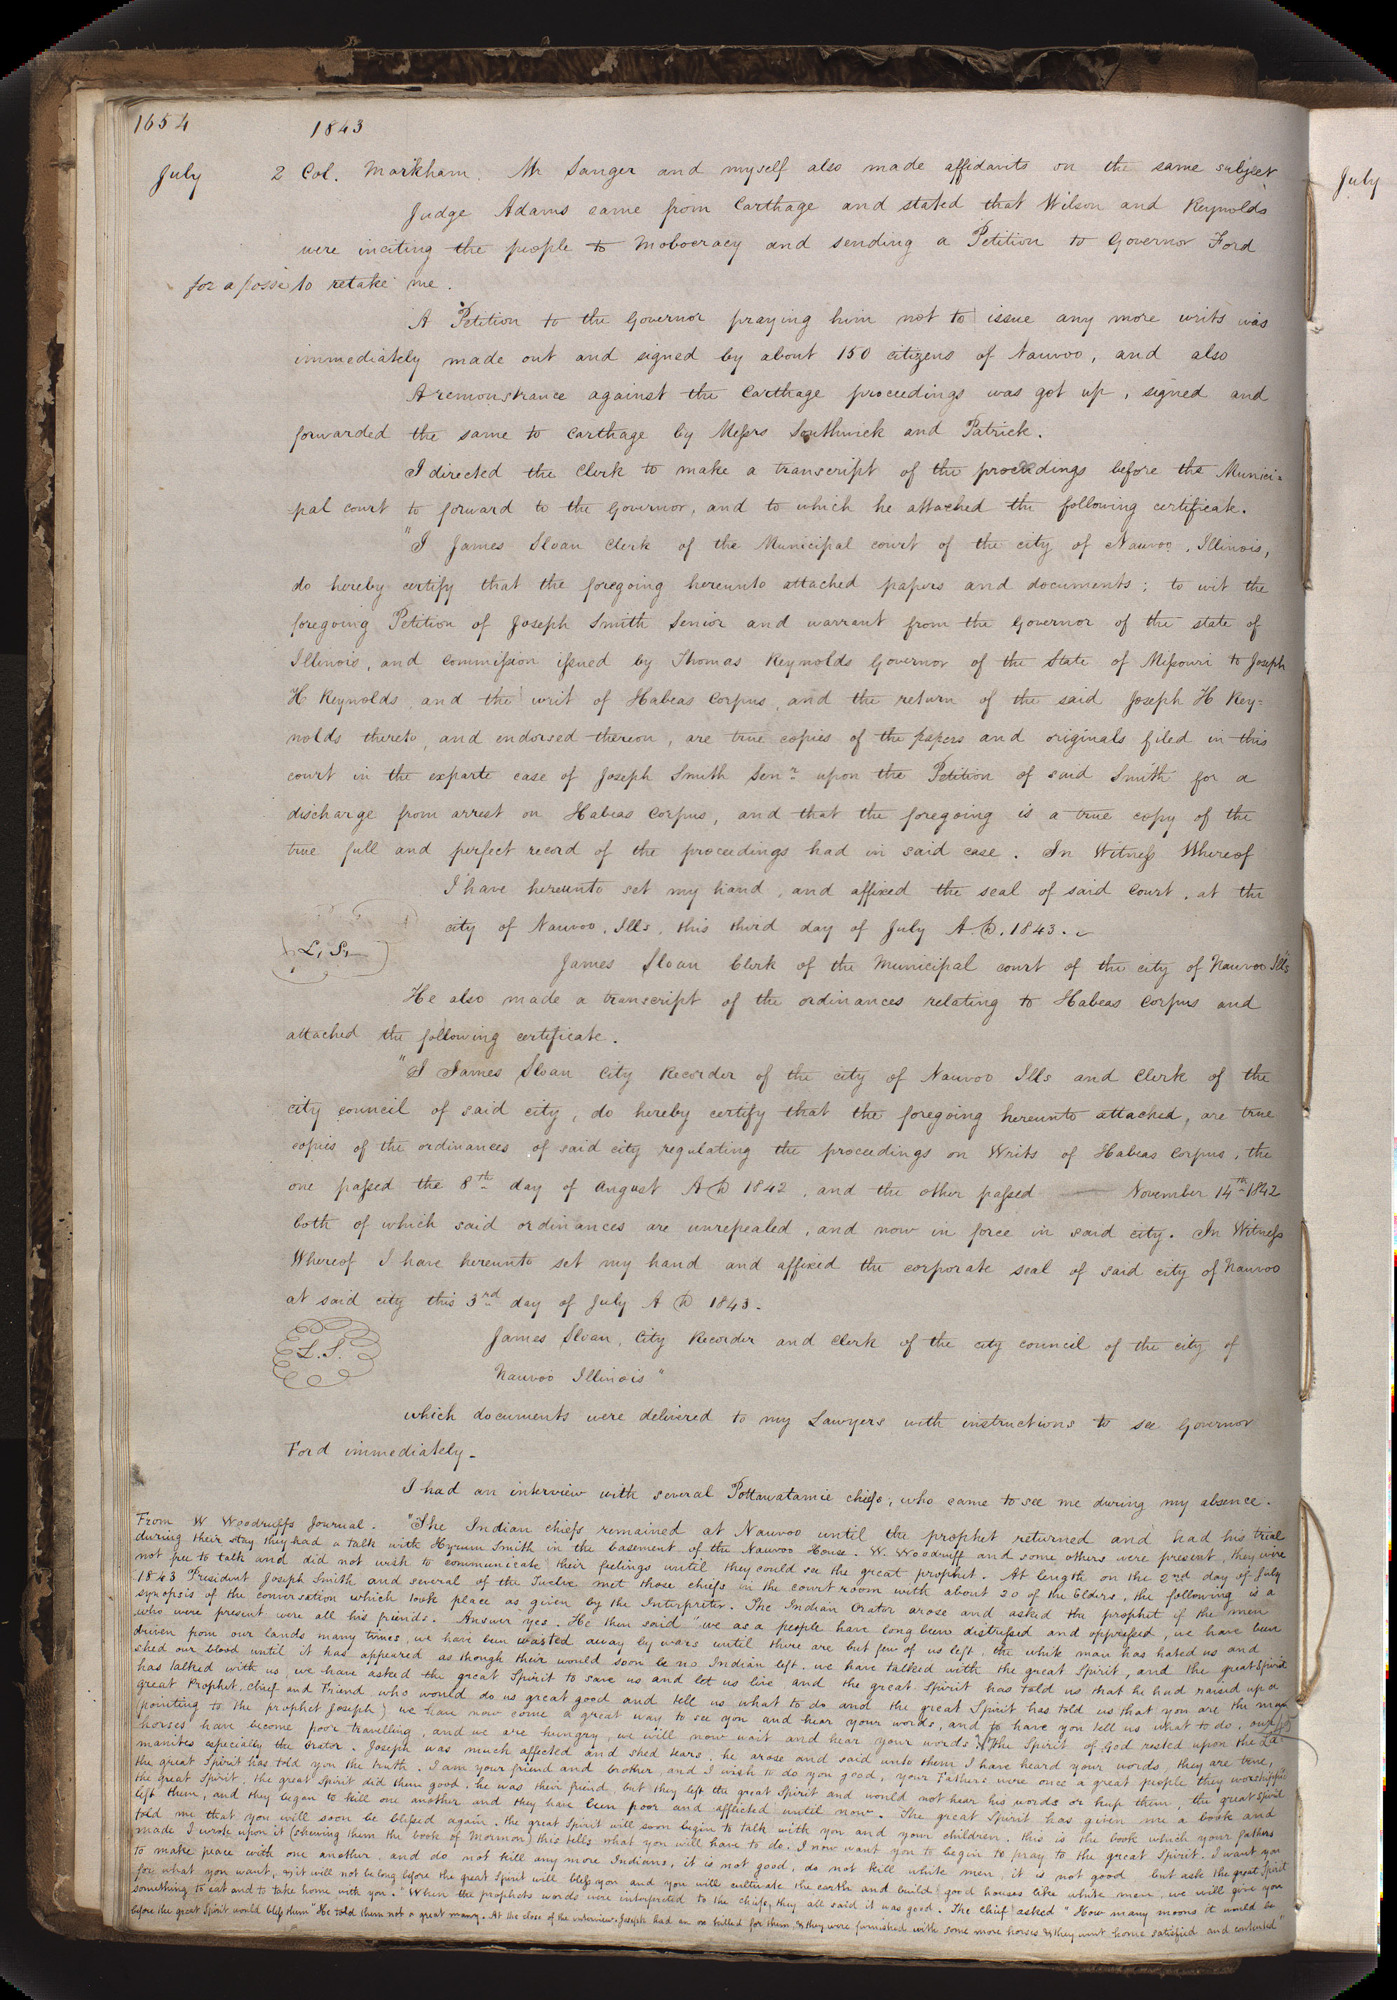 1654 1843
July 2 Col. Markham. Mr Sanger and myself also made affidavits on the same subject
July
Judge Adams came from Carthage and stated that Wilson and Reynolds
were inciting the people to Mobocracy and sending a Petition to Governor Ford
for a posse to retake me.
A Petition to the Governor praying him not to issue any more writs was
immediately made out and signed by about 150 citizens of Nauvoo, and also
A remonstrance against the Carthage proceedings was got up, signed and
forwarded the same to Carthage by Messrs Southwick and Patrick.
I directed the Clerk to make a transcript of the proceedings before the Munici-
pal court to forward to the Governor, and to which he attached the following certificate.
"I James Sloan Clerk of the Municipal court of the city of Nauvoo, Illinois,
do hereby certify that the foregoing hereunto attached papers and documents; to wit the
foregoing Petition of Joseph Smith Senior and warrant from the Governor of the state of
Illinois, and Commission issued by Thomas Reynolds Governor of the State of Missouri to Joseph
H Reynolds, and the writ of Habeas Corpus, and the return of the said Joseph H Rey=
nolds thereto, and endorsed thereon, are true copies of the papers and originals filed in this
court in the exparte case of Joseph Smith Senr upon the Petition of said Smith for a
discharge from arrest on Habeas Corpus, and that the foregoing is a true copy of the
true full and perfect record of the proceedings had in said case. In Witness Whereof
I have hereunto set my hand, and affixed the seal of said Court, at the
city of Nauvoo, Ills, this third day of July A.D. 1843.
L, S,
James Sloan Clerk of the Municipal court of the city of Nauvoo Ills
He also made a transcript of the ordinances relating to Habeas Corpus and
attached the following certificate.
"I James Sloan City Recorder of the city of Nauvoo Ills and Clerk of the
city council of said city, do hereby certify that the foregoing hereunto attached, are true
copies of the ordinances of said city regulating the proceedings on Writs of Habeas Corpus, the
one passed the 8th day of August A D 1842, and the other passed November 14th 1842
both of which said ordinances are unrepealed, and now in force in said city. In Witness
Whereof I have hereunto set my hand and affixed the corporate seal of said city of Nauvoo
at said city this 3rd day of July A D 1843.
L. S.
James Sloan, City Recorder and Clerk of the city council of the city of
Nauvoo Illinois"
which documents were delivered to my Lawyers with instructions to see Governor
Ford immediately.
I had an interview with several Pottawatamie chiefs, who came to see me during my absence.
From W Woodruffs Journal. "The Indian chiefs remained at Nauvoo until the prophet returned and had his trial
during their stay they had a talk with Hyrum Smith in the basement of the Nauvoo House. W. Woodruff and some others were present, they were
not free to talk and did not wish to communicate their feelings until they could see the great prophet. At length on the 2nd day of July
1843 President Joseph Smith and several of the Twelve met those chiefs in the court room with about 20 of the Elders, the following is a
synopsis of the conversation which took place as given by the Interpreter. The Indian Orator arose and asked the prophet if the men
who were present were all his friends. Answer yes. He then said "we as a people have long been distressed and oppressed, we have been
driven from our lands many times, we have been wasted away by wars until there are but few of us left, the white man has hated us and
shed our blood until it has appeared as though their would soon be no Indian left. we have talked with the great Spirit, and the great Spirit
has talked with us, we have asked the great Spirit to save us and let us live and the great Spirit has told us that he had raised up a
great Prophet, chief and Friend, who would do us great good and tell us what to do and the great Spirit has told us that you are the man
(pointing to the prophet Joseph) we have now come a great way to see you and hear your words, and to have you tell us what to do, our
horses have become poor travelling, and we are hungry, we will now wait and hear your words". The Spirit of God rested upon the La
manites especially the Orator. Joseph was much affected and shed tears, he arose and said unto them I have heard your words, they are true,
the great Spirit has told you the truth. I am your friend and brother, and I wish to do you good, your Fathers were once a great people they worshipped
the great Spirit, the great Spirit did them good, he was their friend, but they left the great Spirit and would not hear his words or keep them, the great Spirit
left them, and they began to kill one another and they have been poor and afflicted until now. The great Spirit has given me a book and
told me that you will soon be blessed again. the great Spirit will soon begin to talk with you and your children. this is the book which your fathers
made I wrote upon it (shewing them the book of Mormon) this tells what you will have to do. I now want you to begin to pray to the great Spirit. I want you
to make peace with one another, and do not kill any more Indians, it is not good, do not kill white men, it is not good but ask the great Spirit
for what you want, & it will not be long before the great Spirit will bless you and you will cultivate the earth and build good houses like white men, we will give you
something to eat and to take home with you." When the prophets words were interpreted to the chiefs, they all said it was good. The chief asked "How many moons it would be
before the great Spirit would bless them" He told them not a great many. At the close of the interview Joseph had an ox killed for them & they were furnished with some more horses & they went home satisfied and contented"